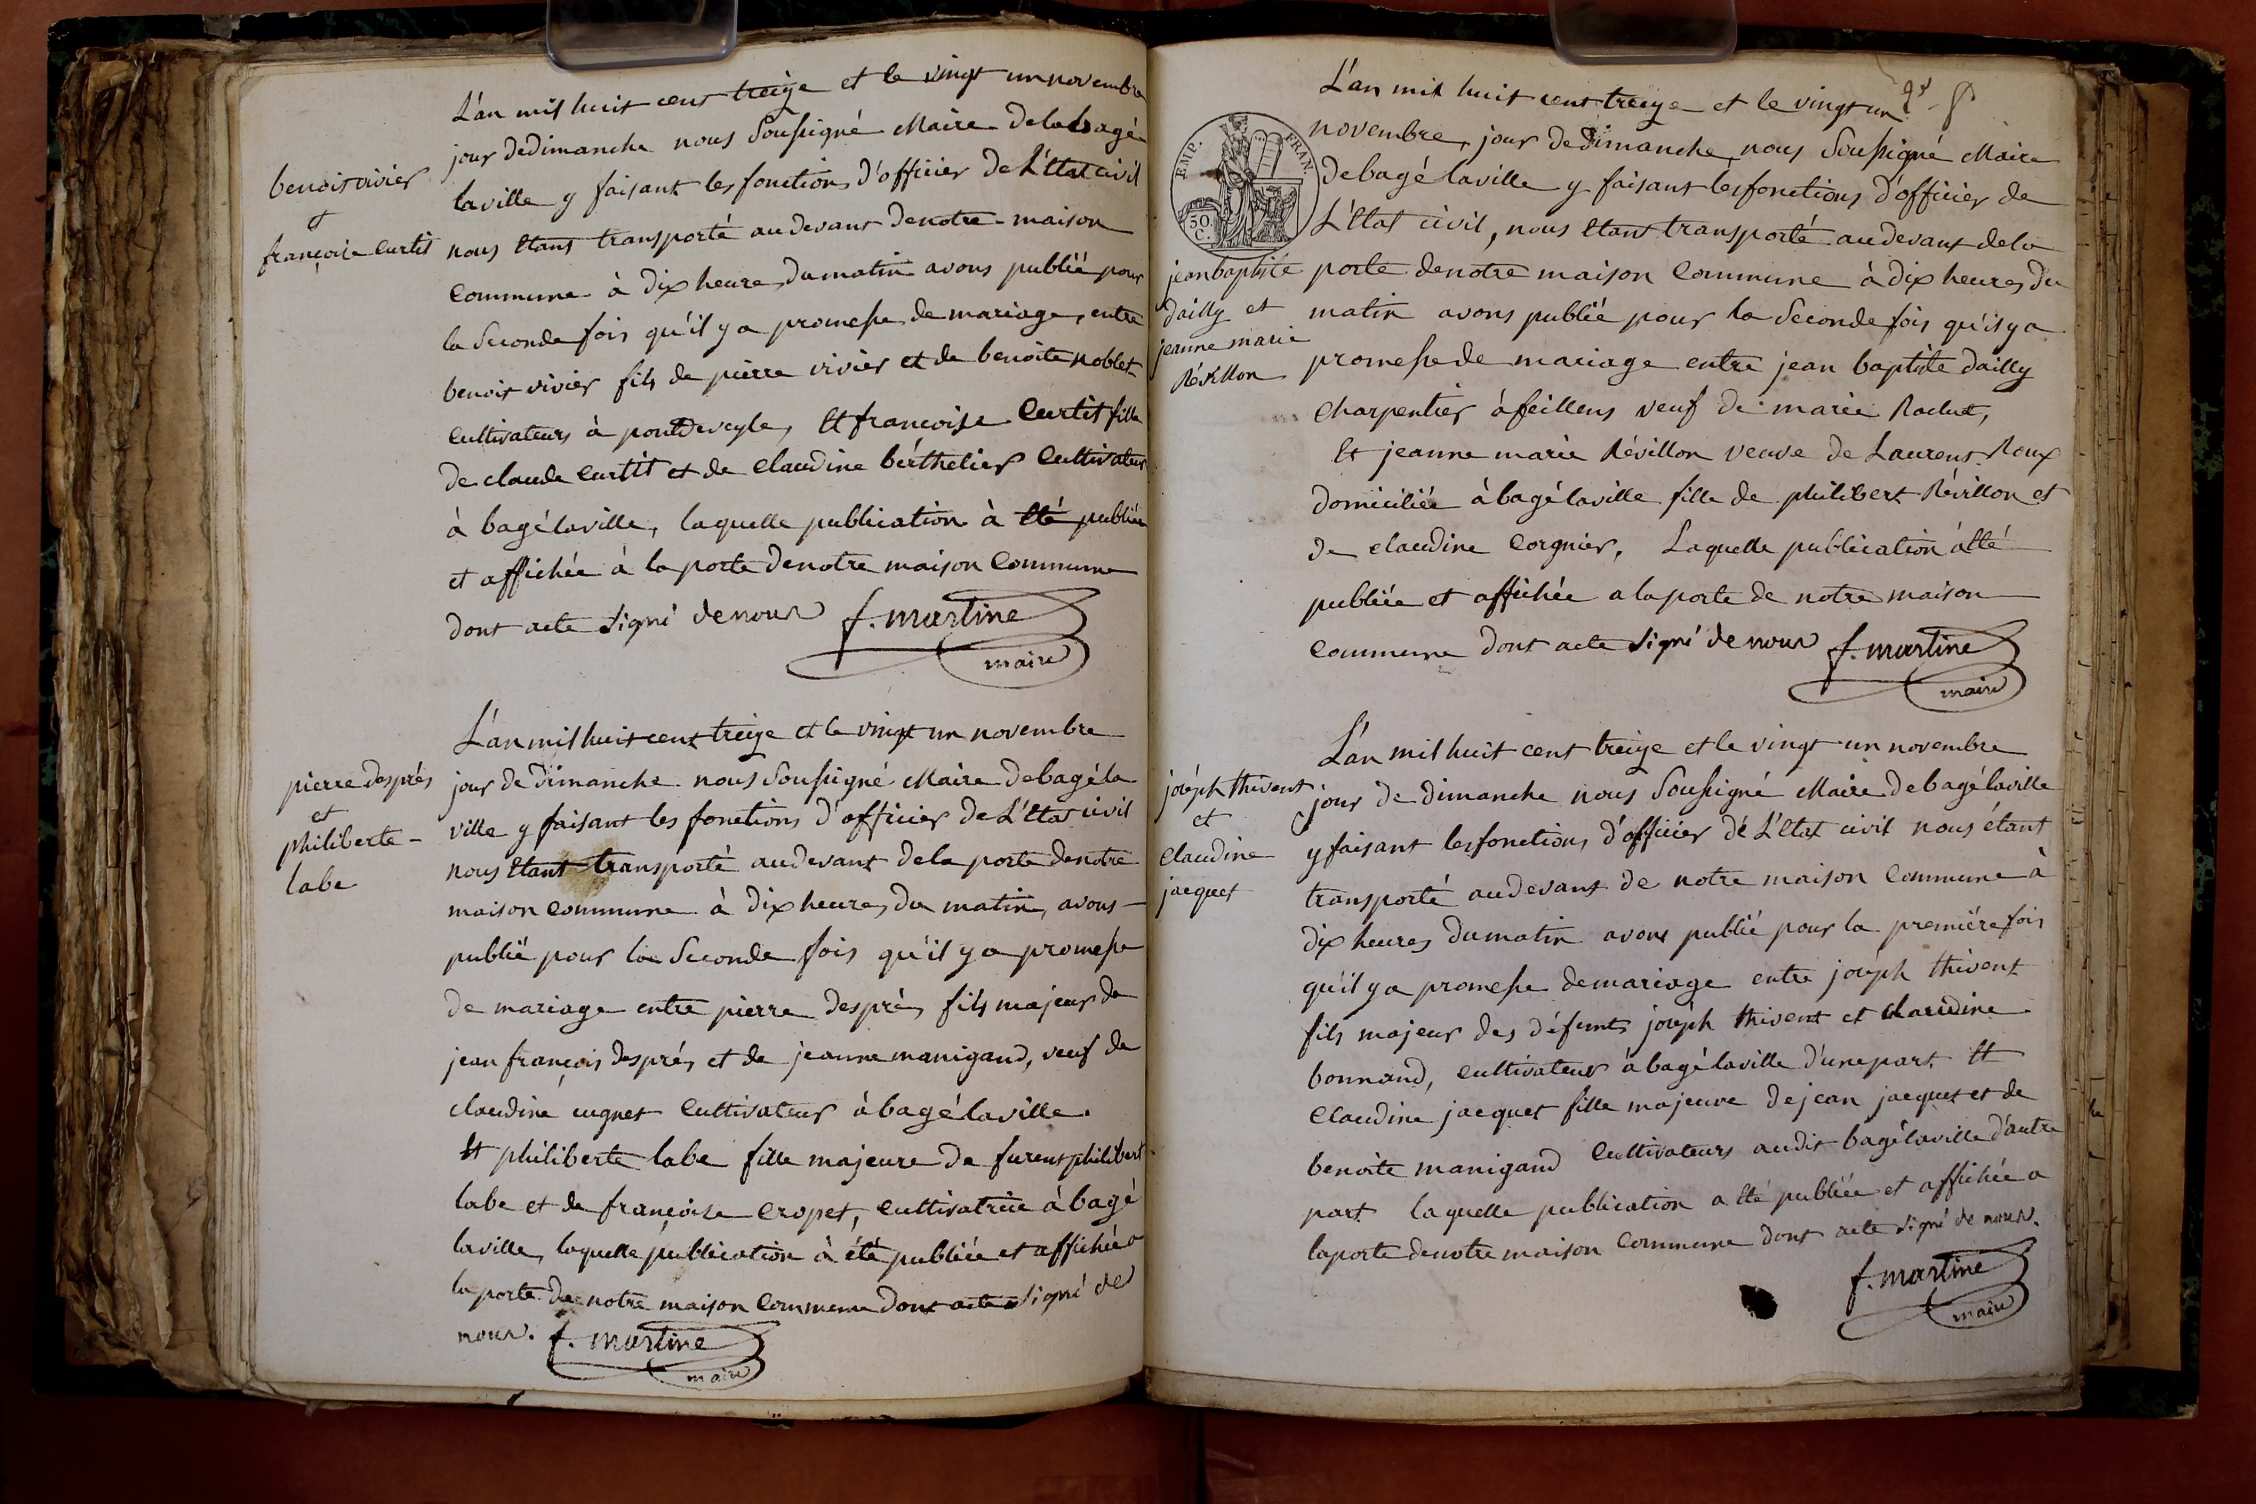 benoit vivier
et
françoise curtit
L'an mil huit cent treize et le vingt un novembre
jour de dimanche nous Soussigné Maire de bagé
laville y faisant les fonctions d'officier de L'Etat civil
nous Etant transporté au devant de notre maison
Commune à dix heures du matin avons publié pour
la Seconde fois qu'il y a promesse de mariage, entre
benoit vivier fils de pierre vivier et de benoite noblet
cultivateurs à pontdeveyle, Et françoise Curtit fille
de claude Curtit et de Claudine bérthelier Cultivateurs
à bagé laville, laquelle publication à été publiée
et affichée à la porte de notre maison Commune
dont acte signé de nous f. martine
maire
pierre desprès
et
philiberte
labe
L'an mil huit cent treize et le vingt un novembre
jour de dimanche nous Soussigné Maire de bagé la
ville y faisant les fonctions d'officier de L'Etat civil
nous Etant transporté au devant de la porte de notre
maison commune à dix heures du matin, avons
publié pour la Seconde fois qu'il y a promesse
de mariage entre pierre desprès fils majeur de
jean françois desprès et de jeanne manigand, veuf de
claudine cugnet Cultivateur à bagé laville.
Et philiberte labe fille majeure de furent philibert
labe et de françoise cropet, cultivatrice à bagé
laville, laquelle publication à été publiée et affichée a
la porte de notre maison Commune dont acte signé de
nous. f. martine
maire
EMP. FRAN.
50.
C.
jean baptiste
dailly et
jeanne marie
Révillon
L'an mil huit cent treize et le vingt un
novembre, jour de dimanche, nous Soussigné Maire
de bagé laville y faisant les fonctions d'officier de
L'Etat civil, nous Etant transporté au devant de la
porte de notre maison Commune à dix heures du
matin avons publié pour la Seconde fois qu'il y a
promesse de mariage entre jean baptiste dailly
charpentier à feillens veuf de marie
Et jeanne marie Révillon veuve de Laurent Roux
domiciliée à bagé laville fille de philibert Révillon et
de claudine Corgnier, Laquelle publication à été
publiée et affichée a la porte de notre maison
Commune dont acte signé de nous f. martine
maire
joséph thivent
et
Claudine
jacquet
L'an mil huit cent treize et le vingt un novembre
jour de dimanche nous Soussigné Maire de bagé laville
y faisant les fonctions d'officier dé L'Etat civil nous étant
transporté au devant de notre maison Commune à
dix heures du matin avons publié pour la premiére fois
qu'il y a promesse de mariage entre joséph thivent
fils majeur des défunts joséph thivent et claudine
bonnand, cultivateur à bagé laville d'une part Et
Claudine jacquet fille majeure de jean jacquet et de
benoite manigand Cultivateurs au dit bagé laville d'autre
part laquelle publication a été publiée et affichée a
la porte de notre maison Commune dont acte signé de nous.
f. martine
maire